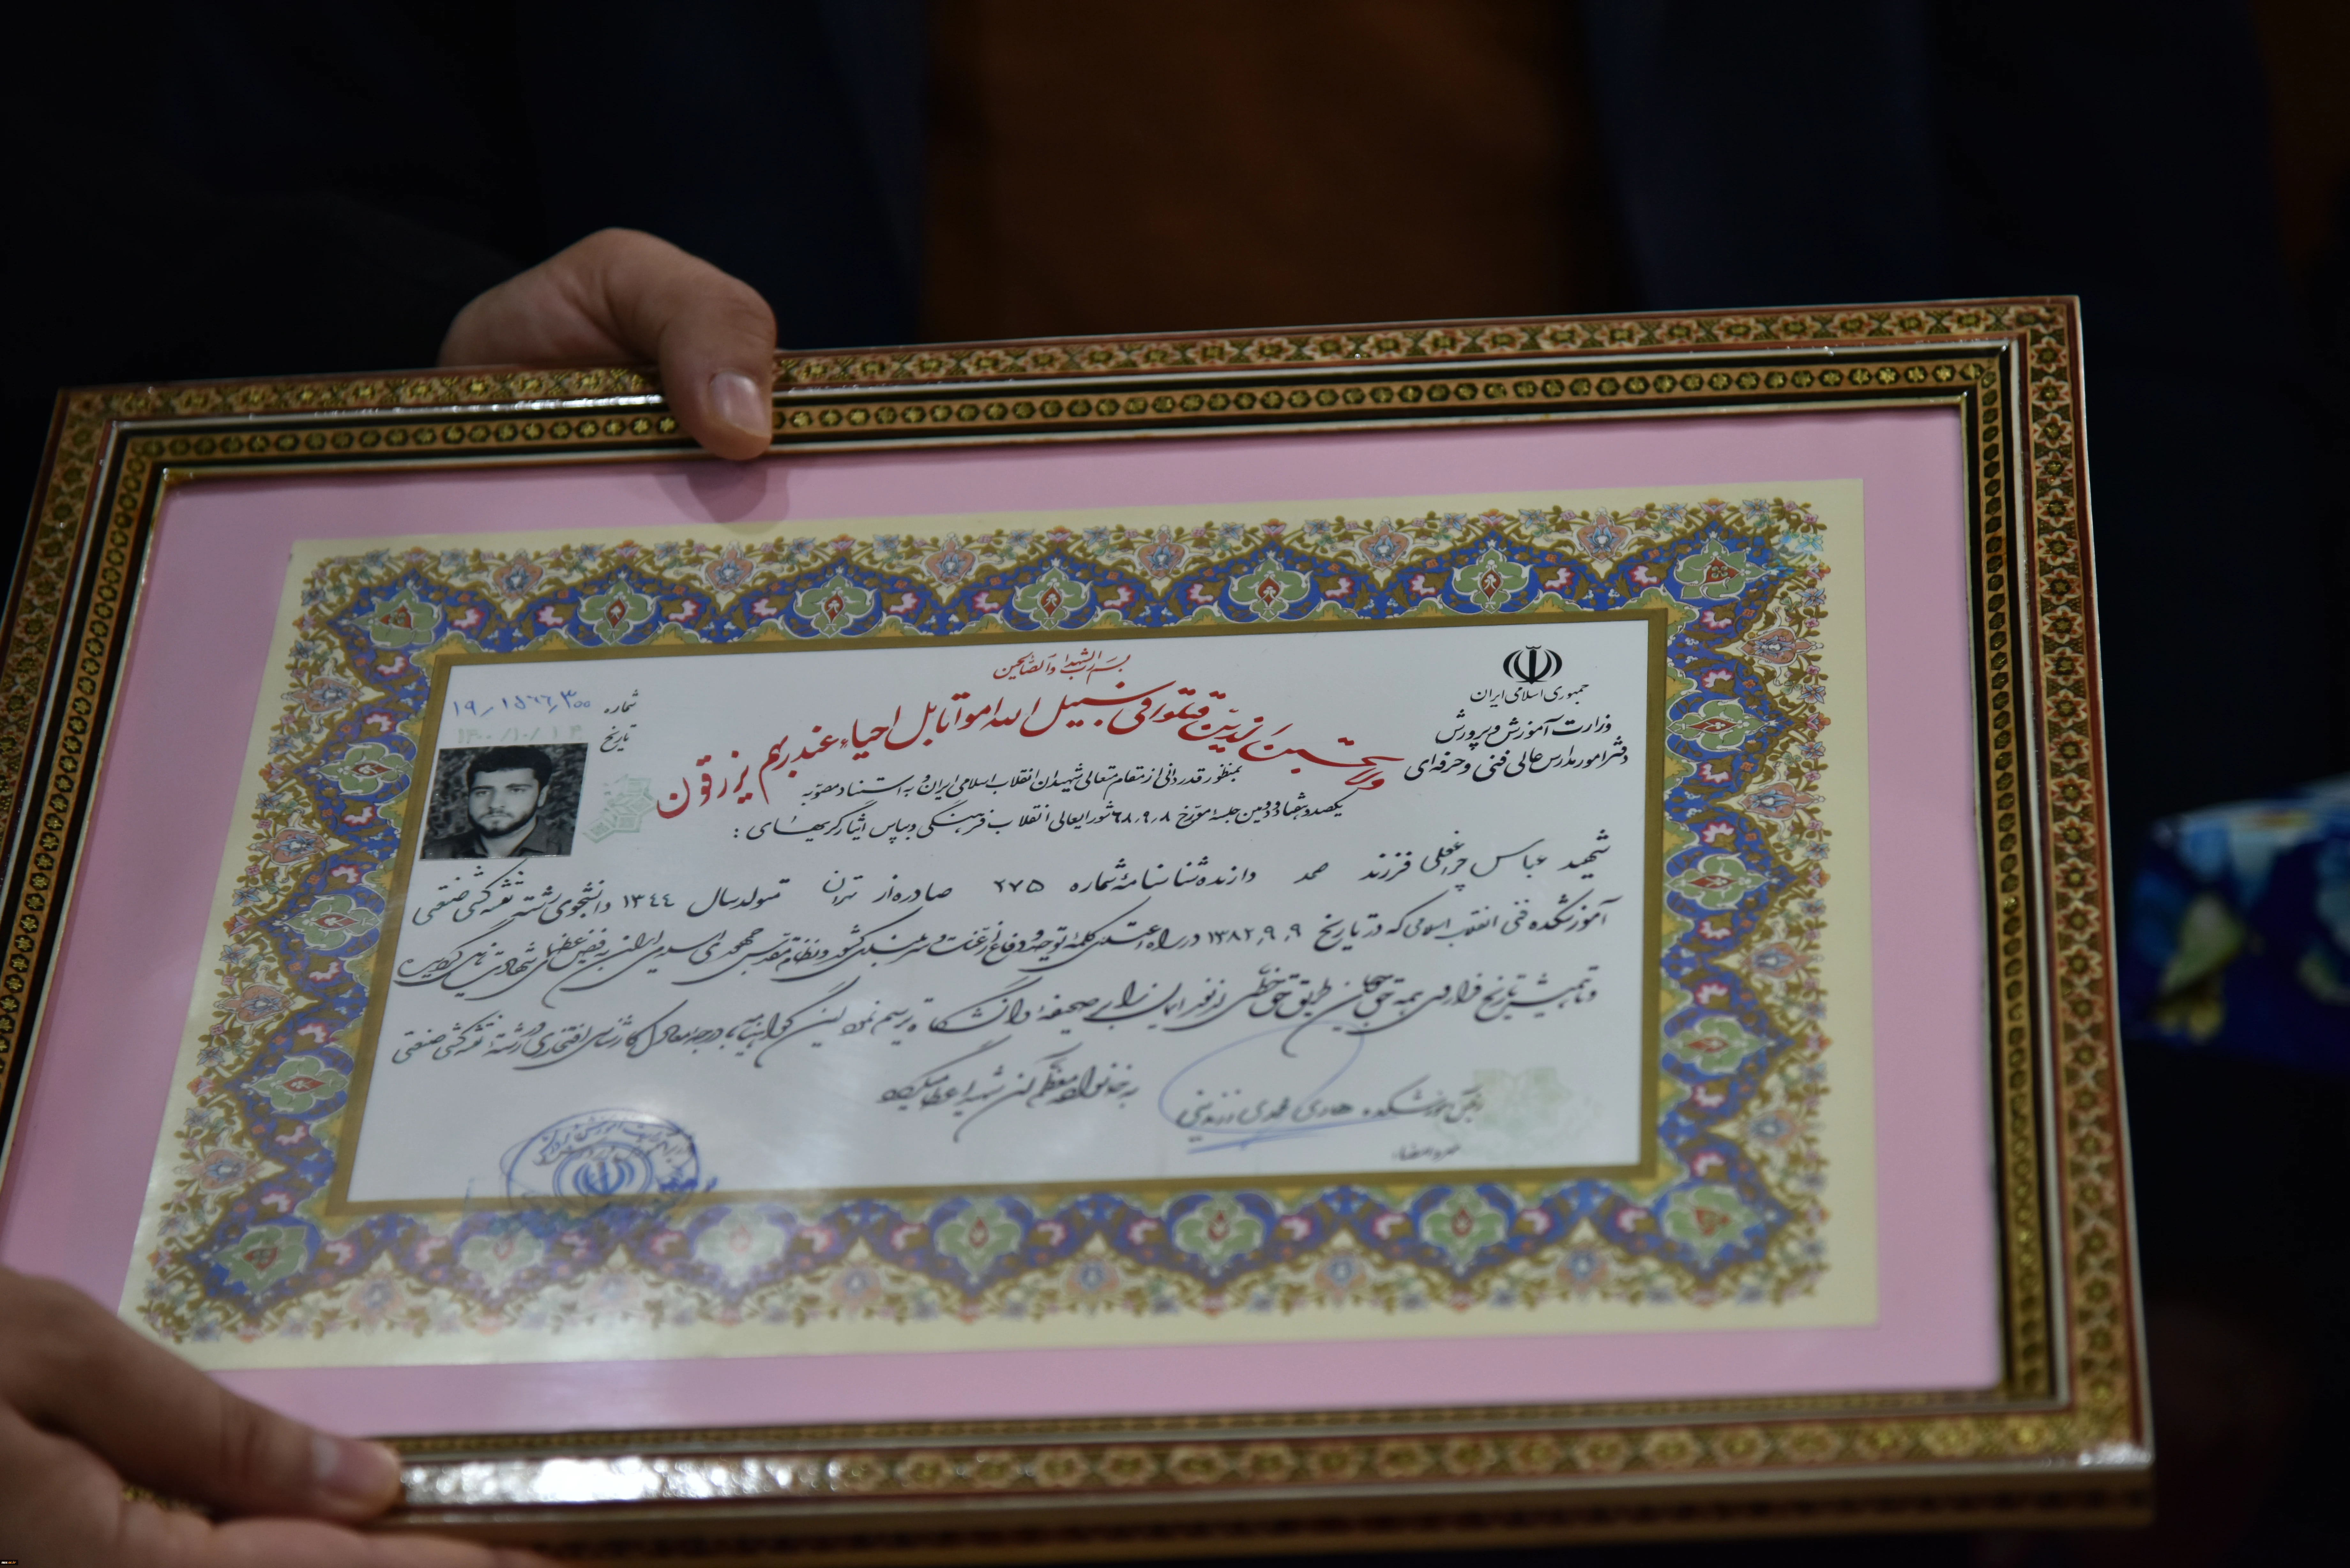 بسم رب الشهداء والصالحین
ولا تحسبن الذین قتلوا فی سبیل الله امواتا بل احیاء عند ربهم یرزقون
جمهوری اسلامی ایران
وزارت آموزش و پرورش
دفتر امور مدارس عالی فنی و حرفه‌ای
شماره
تاریخ
بمنظور قدردانی از مقام متعالی شهیدان انقلاب اسلامی ایران و به استناد مصوبه
یکصد و هشتاد و دومین جلسه مورخ ۶۸٫۹٫۸ شورایعالی انقلاب فرهنگی و بپاس ایثارگریهای :
شهید عباس چراغعلی فرزند صمد دارنده شناسنامه شماره ۲۷۵ صادره از تهران متولد سال ۱۳۴۴ دانشجوی رشته نقشه کشی صنعتی
آموزشکده فنی انقلاب اسلامی که در تاریخ ۱۳۸۲٫۹٫۹ در راه اعتلای کلمه توحید و دفاع از عزت و سربلندی کشور و نظام مقدس جمهوری اسلامی ایران به فیض عظمای شهادت نایل گردیده
و تا همیشه تاریخ فرا روی همه حق‌جویان طریق حق خطی از نور ایمان را بر صحیفه دانشگاه ترسیم نموده این گواهینامه با درجه معادل کارشناسی افتخاری در رشته نقشه کشی صنعتی
به خانواده معظم آن شهید اعطا میگردد
رئیس آموزشکده هادی محمدی
مهر و امضاء